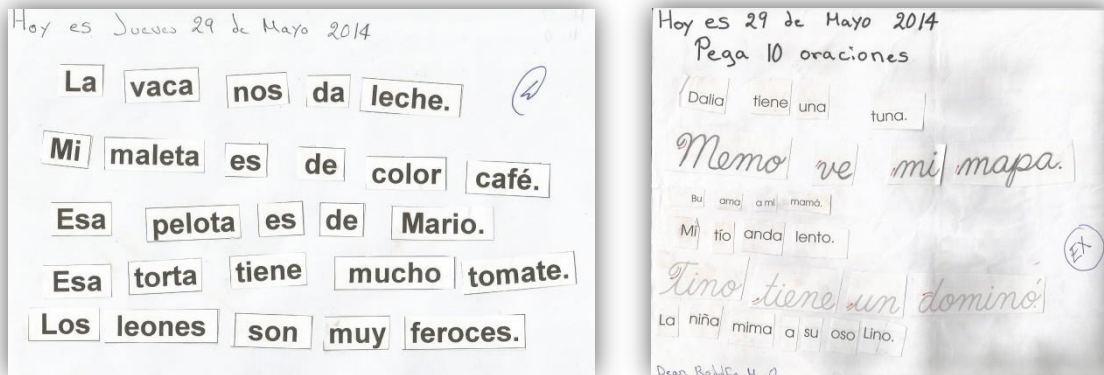 Hoy es Jueves 29 de Mayo 2014
La vaca nos da leche.
Mi maleta es de color café.
Esa pelota es de Mario.
Esa torta tiene mucho tomate.
Los leones son muy feroces.
Hoy es 29 de Mayo 2014
Pega 10 oraciones
Dalia tiene una tuna.
Memo ve mi mapa.
Bu ama a mi mamá.
Mi tío anda lento.
EX
Tino tiene un dominó.
La niña mima a su oso Lino.